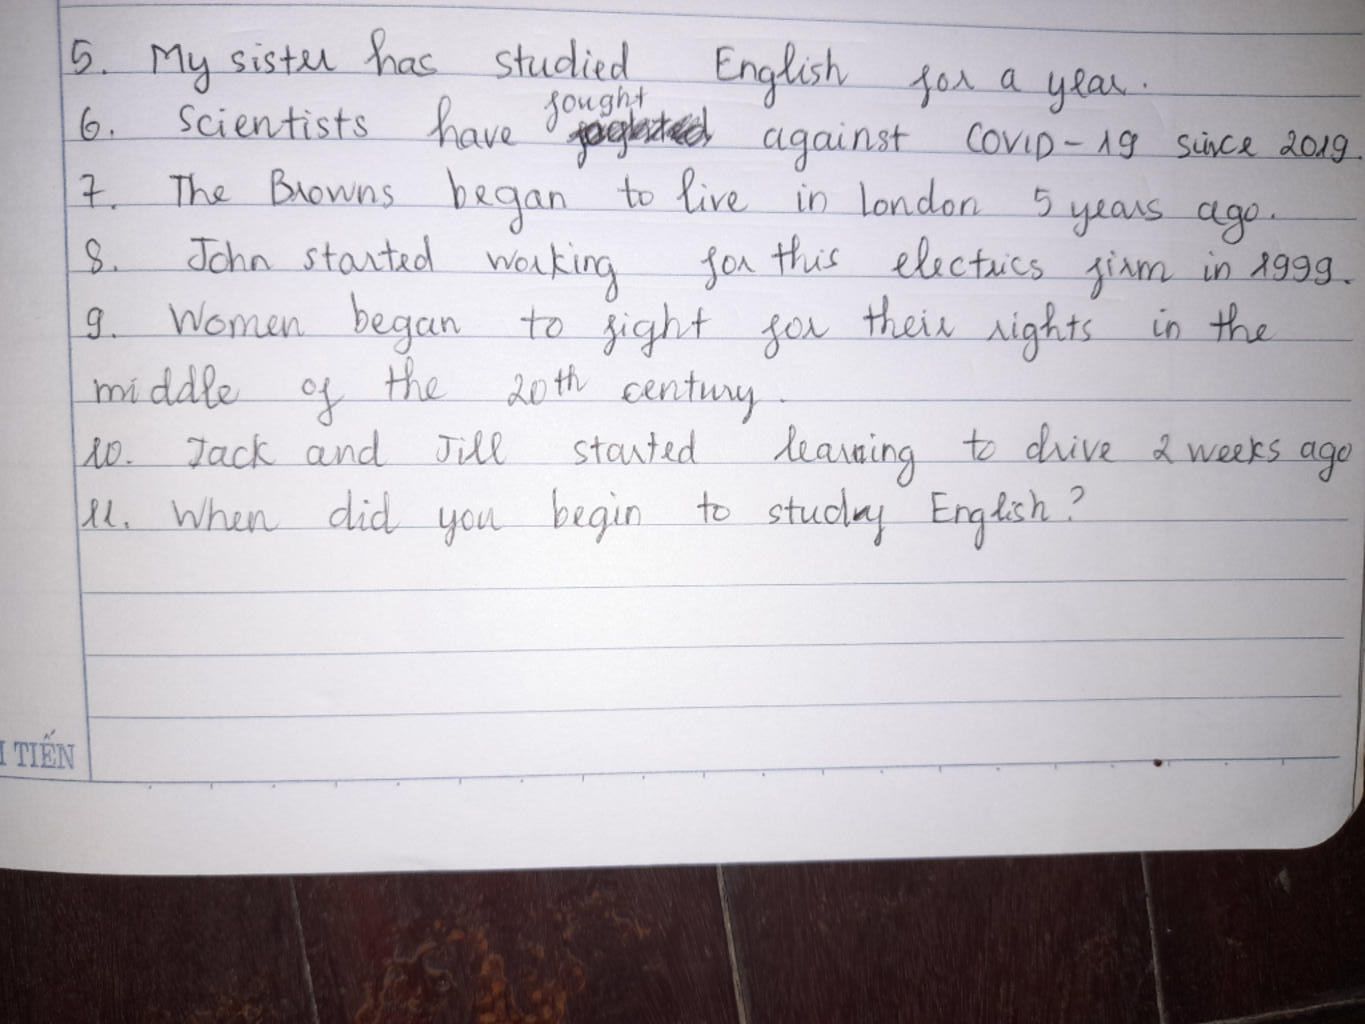 5. My sister has studied English for a year.
fought
6. Scientists have against COVID-19 since 2019.
7. The Browns began to live in London 5 years ago.
8. John started working for this electrics firm in 1999.
9. Women began to fight for their rights in the
middle of the 20th century.
10. Jack and Jill started learning to drive 2 weeks ago
11. When did you begin to study English?
TIẾN